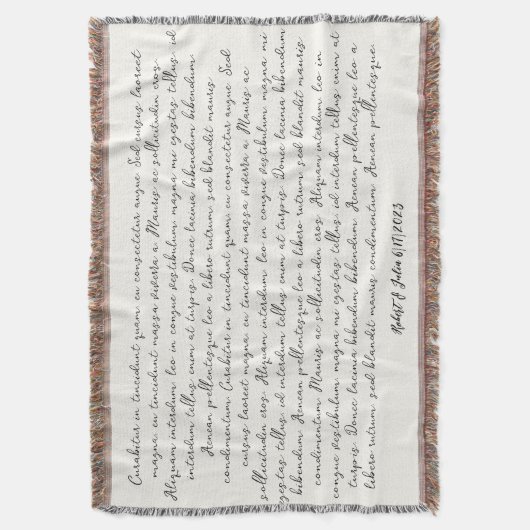 Curabitur in tincidunt quam, eu consectetur augue. Sed cursus laoreet
magna, eu tincidunt massa viverra a. Mauris ac sollicitudin eros.
Aliquam interdum leo in congue vestibulum magna mi egestas tellus, id
interdum tellus enim at turpis. Donec lacinia bibendum bibendum.
Aenean pellentesque leo a libero rutrum, sed blandit mauris
condimentum. Curabitur in tincidunt quam, eu consectetur augue. Sed
cursus laoreet magna, eu tincidunt massa viverra a. Mauris ac
sollicitudin eros. Aliquam interdum leo in congue vestibulum magna mi
egestas tellus, id interdum tellus enim at turpis. Donec lacinia bibendum
bibendum. Aenean pellentesque leo a libero rutrum, sed blandit mauris
condimentum. Mauris ac sollicitudin eros. Aliquam interdum leo in
congue vestibulum magna mi egestas tellus, id interdum tellus enim at
turpis. Donec lacinia bibendum bibendum. Aenean pellentesque leo a
libero rutrum, sed blandit mauris condimentum. Aenean pellentesque.
Robert & Julia 6|17|2023